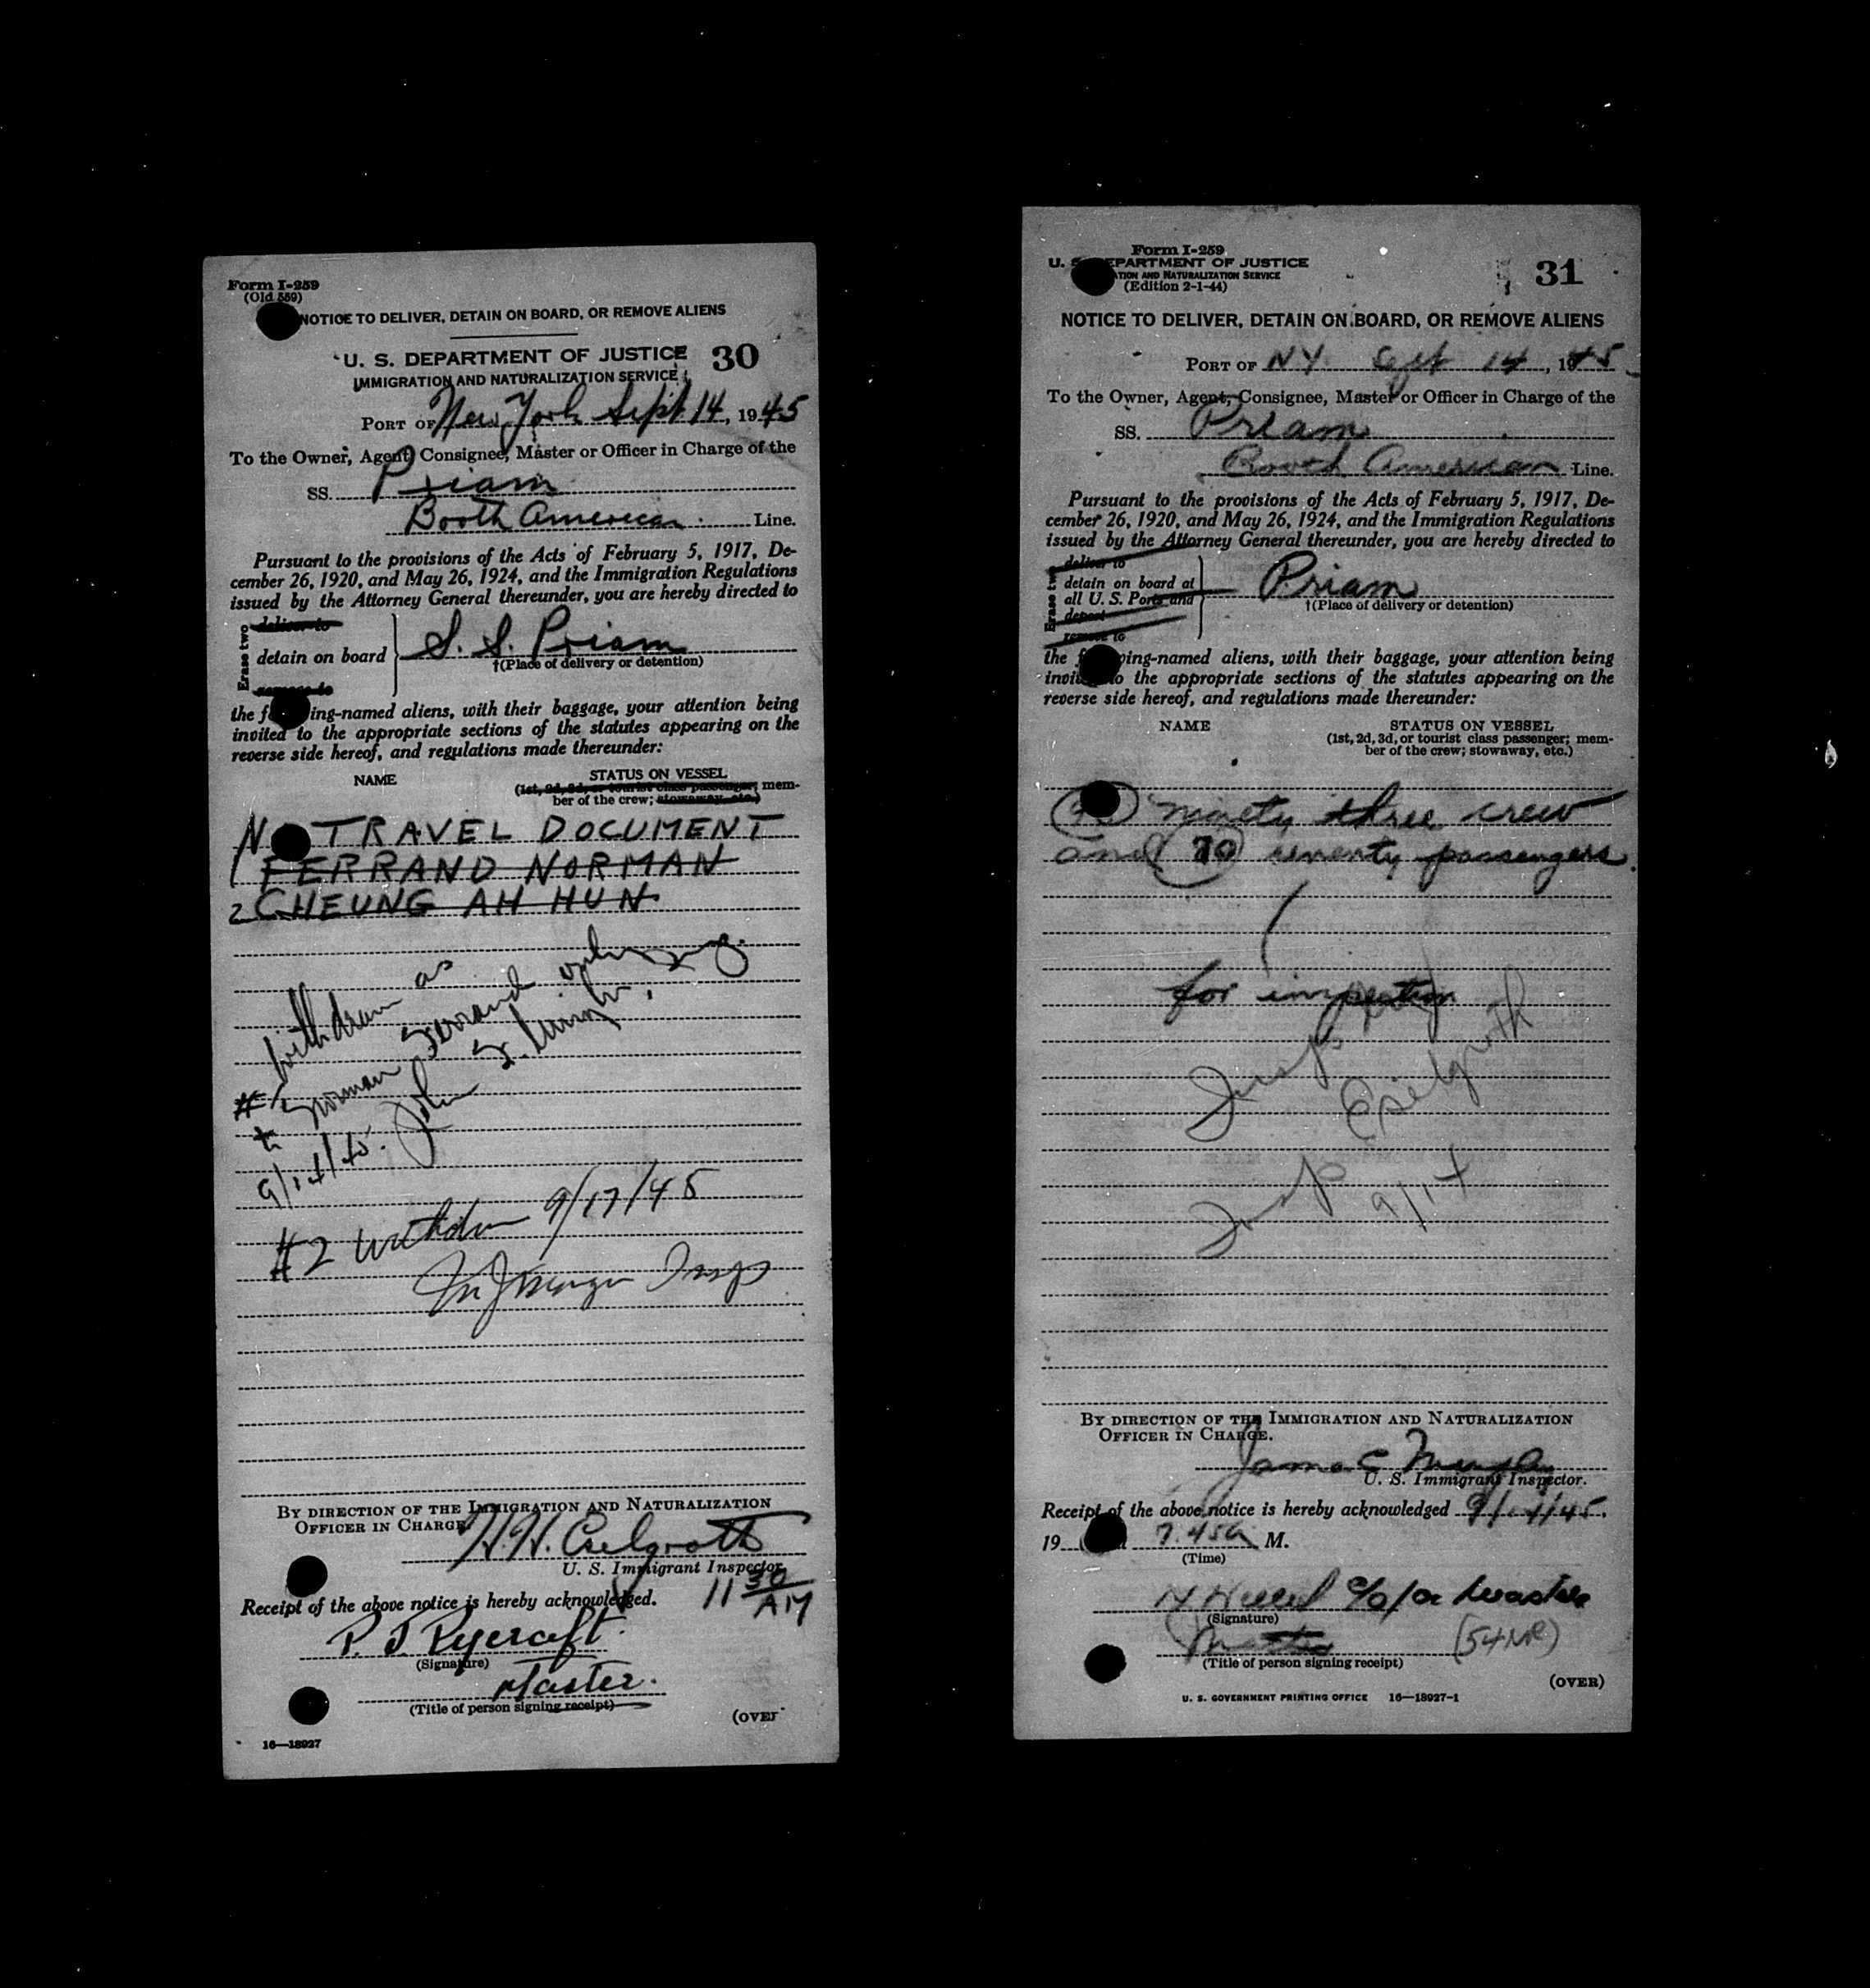 Form I-259
(Old 559)
NOTICE TO DELIVER, DETAIN ON BOARD, OR REMOVE ALIENS
U. S. DEPARTMENT OF JUSTICE 30
IMMIGRATION AND NATURALIZATION SERVICE
PORT OF New York Sept 14, 1945
To the Owner, Agent, Consignee, Master or Officer in Charge of the
SS. Priam
Booth American Line.
Pursuant to the provisions of the Acts of February 5, 1917, De-
cember 26, 1920, and May 26, 1924, and the Immigration Regulations
issued by the Attorney General thereunder, you are hereby directed to
Erase two
deliver to
detain on board } S. S. Priam
remove to
†(Place of delivery or detention)
the f ing-named aliens, with their baggage, your attention being
invited to the appropriate sections of the statutes appearing on the
reverse side hereof, and regulations made thereunder:
NAME STATUS ON VESSEL
(1st, 2d, 3d, or tourist class passenger; mem-
ber of the crew; stowaway, etc.)
NO TRAVEL DOCUMENT
1 FERRAND NORMAN
2 CHEUNG AH HUN
#1 withdrawn as
to Norman Ferrand only
9/14/45. John
#2 Withdn 9/17/45
Insp
BY DIRECTION OF THE IMMIGRATION AND NATURALIZATION
OFFICER IN CHARGE.
H. H. Eselgroth
U. S. Immigrant Inspector.
Receipt of the above notice is hereby acknowledged. 11 30 AM
P. J. Ryecroft.
(Signature)
Master.
(Title of person signing receipt)
(OVER
16—18927
Form I-259
U. S. DEPARTMENT OF JUSTICE
TION AND NATURALIZATION SERVICE
(Edition 2-1-44)
31
NOTICE TO DELIVER, DETAIN ON BOARD, OR REMOVE ALIENS
PORT OF NY Sept 14, 1945
To the Owner, Agent, Consignee, Master or Officer in Charge of the
SS. Priam
Booth American Line.
Pursuant to the provisions of the Acts of February 5, 1917, De-
cember 26, 1920, and May 26, 1924, and the Immigration Regulations
issued by the Attorney General thereunder, you are hereby directed to
Erase two
deliver to
detain on board at
all U. S. Ports and } Priam
deport
remove to
†(Place of delivery or detention)
the f wing-named aliens, with their baggage, your attention being
invit to the appropriate sections of the statutes appearing on the
reverse side hereof, and regulations made thereunder:
NAME STATUS ON VESSEL
(1st, 2d, 3d, or tourist class passenger; mem-
ber of the crew; stowaway, etc.)
ninety three crew
and 70 seventy passengers.
for inspection
Insp
Eselgroth
Insp 9/14
BY DIRECTION OF THE IMMIGRATION AND NATURALIZATION
OFFICER IN CHARGE.
James C
U. S. Immigrant Inspector.
Receipt of the above notice is hereby acknowledged 9/14/45.
19 7.45a M.
(Time)
c/o for Master
(Signature)
Master (54NR)
(Title of person signing receipt)
(OVER)
U. S. GOVERNMENT PRINTING OFFICE 16—18927-1